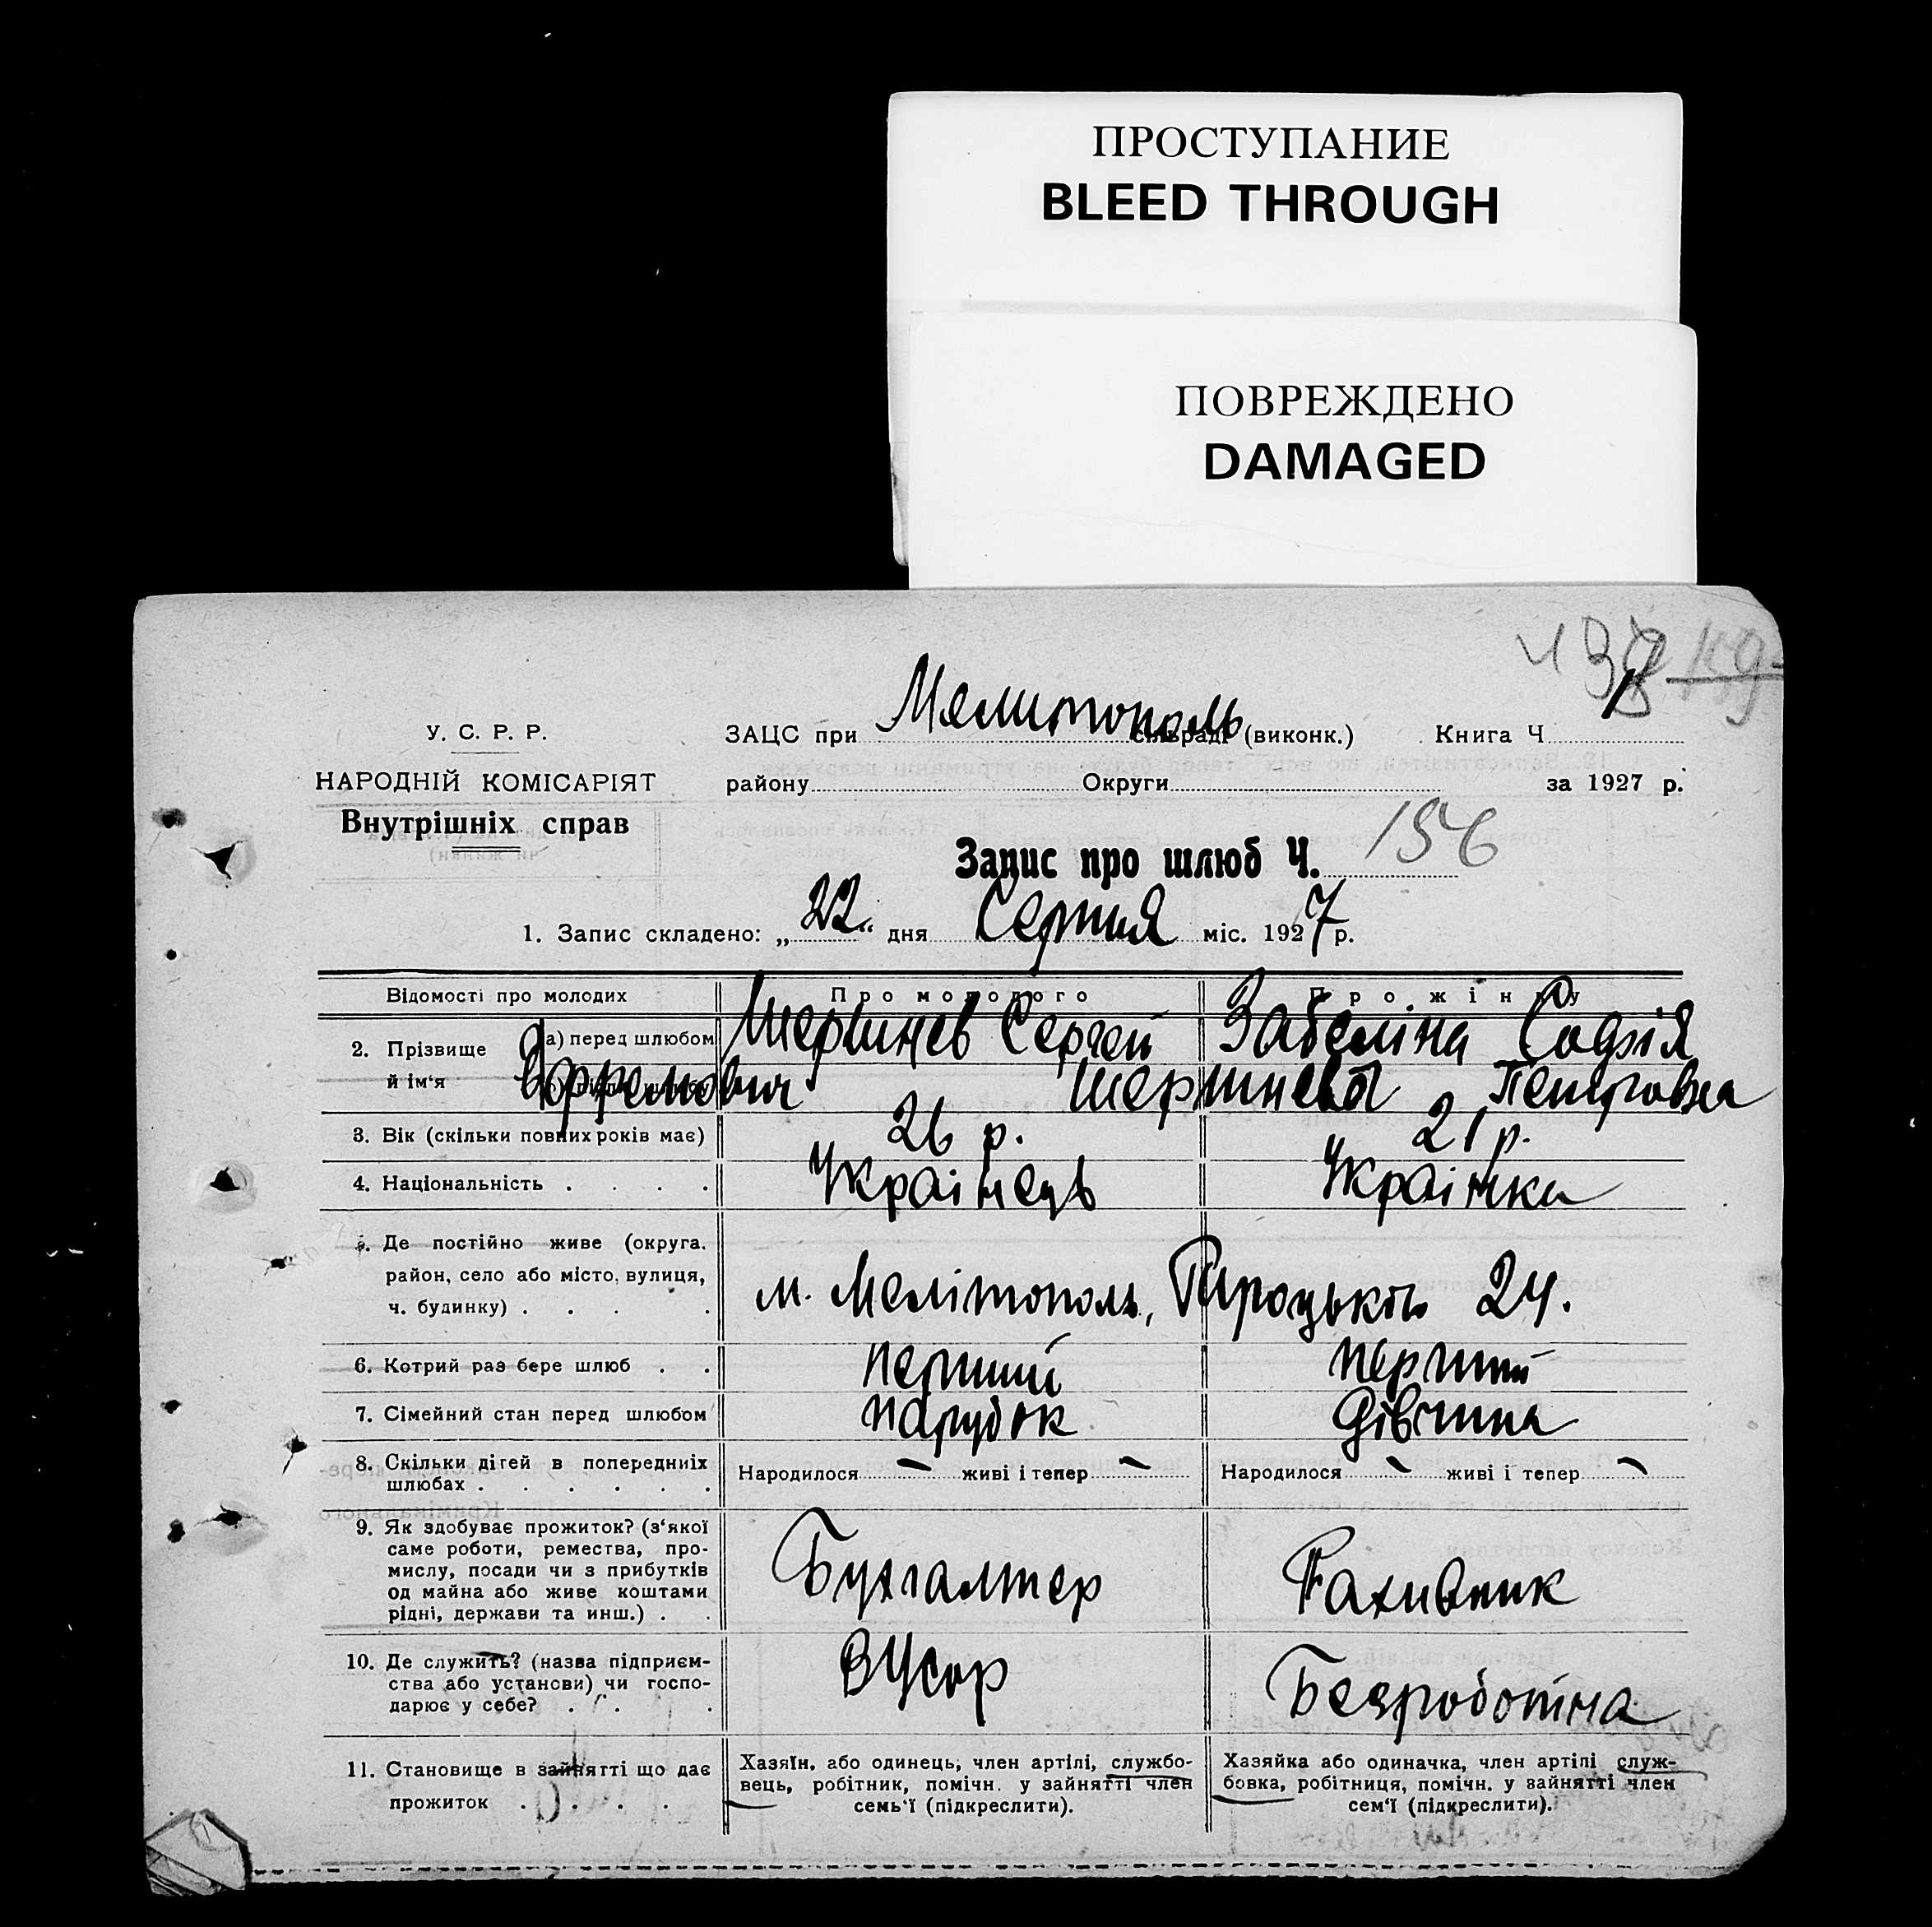 ПРОСТУПАНИЕ
BLEED THROUGH
ПОВРЕЖДЕНО
DAMAGED
У. С. Р. Р.
НАРОДНІЙ КОМІСАРІЯТ
Внутрішніх справ
ЗАЦС при Мелитополь сільраді (виконк.) Книга Ч
району Округи за 1927 р.
Запис про шлюб Ч. 156
1. Запис складено: „22“ дня Серпня міс. 1927 р.
Відомості про молодих Про молодого Про жінку
2. Прізвище й ім‘я а) перед шлюбом Шершнев Сергей Забеліна Софія
Шершнева Петровна
3. Вік (скільки повних років має) 26 р. 21 р.
4. Національність . . . . Українець Українка
5. Де постійно живе (округа, район, село або місто, вулиця, ч. будинку) . . . . м. Мелітополь, Троцького 24.
6. Котрий раз бере шлюб . . перший перший
7. Сімейний стан перед шлюбом парубок дівчина
8. Скільки дітей в попередніх шлюбах . . . . . . Народилося — живі і тепер — Народилося — живі і тепер —
9. Як здобуває прожиток? (з‘якої саме роботи, ремества, промислу, посади чи з прибутків од майна або живе коштами рідні, держави та инш.) . . Бухгалтер
10. Де служить? (назва підприємства або установи) чи господарює у себе? . . . Безроботна
11. Становище в зайнятті що дає прожиток . . . . . Хазяїн, або одинець, член артілі, службовець, робітник, помічн. у зайнятті член семь‘ї (підкреслити). Хазяйка або одиначка, член артілі службовка, робітниця, помічн. у зайнятті член сем‘ї (підкреслити).